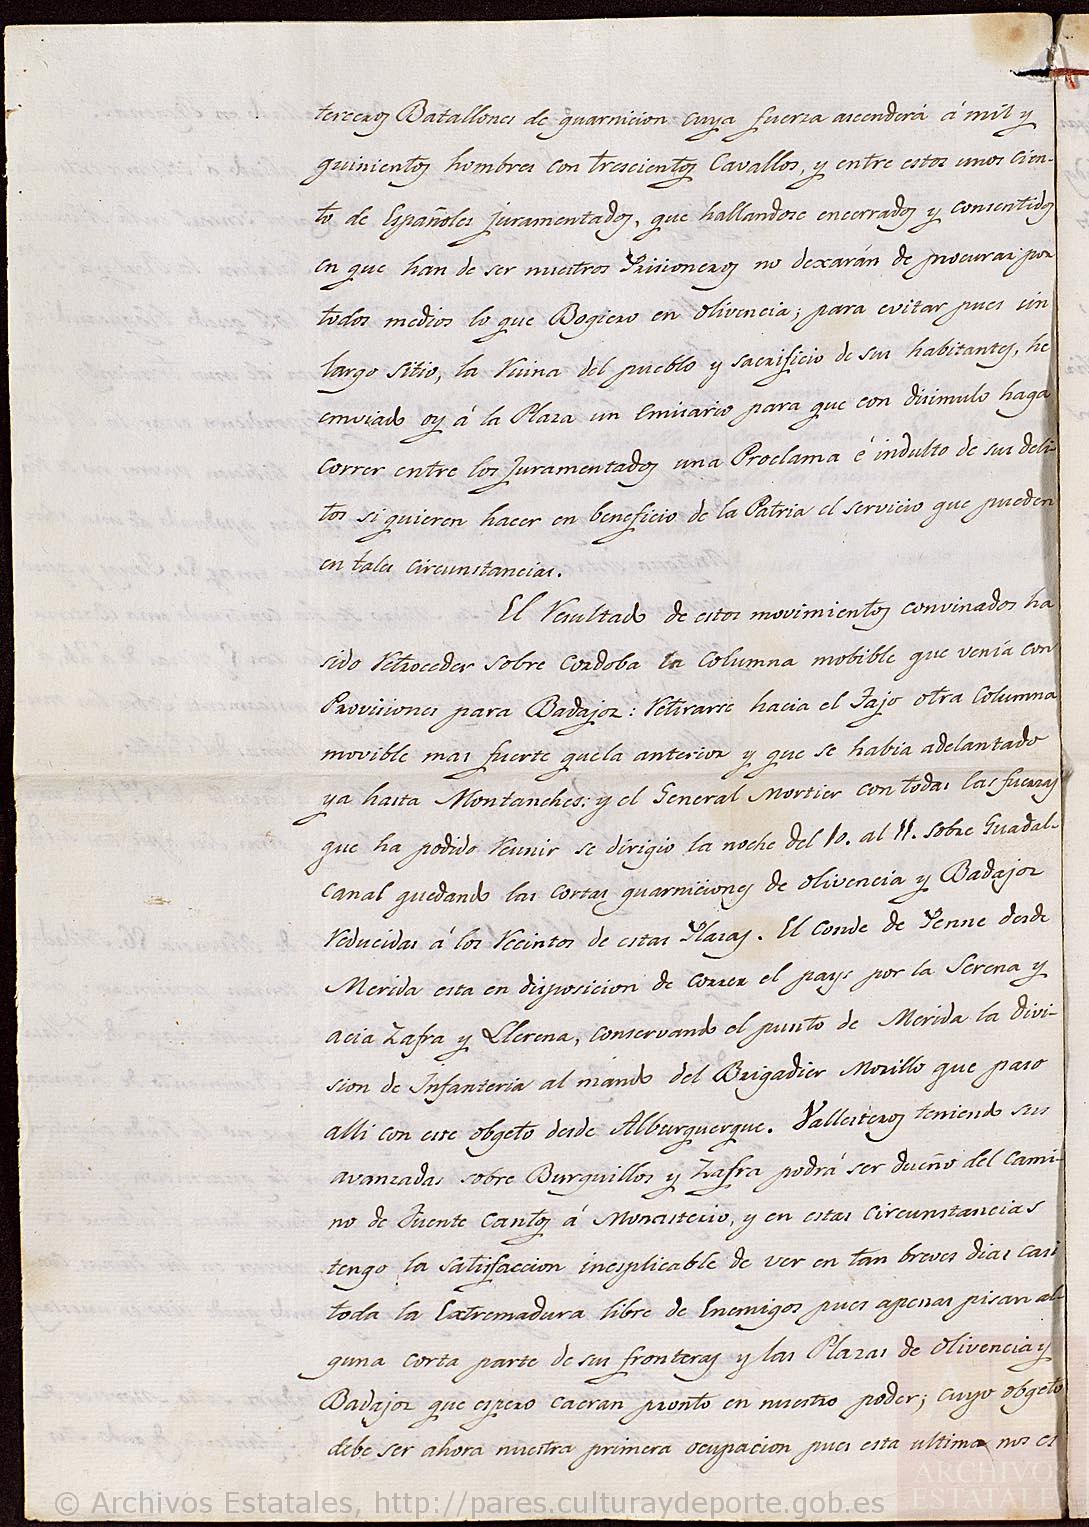 terceros Batallones de guarnicion cuya fuerza ascenderá á mil y
quinientos hombres con trescientos Cavallos, y entre estos unos cien-
to de Españoles juramentados, que hallandose encerrados y consentidos
en que han de ser nuestros Prisioneros no dexarán de procurar por
todos medios lo que Bogiero en Olivencia; para evitar pues un
largo sitio, la Ruina del pueblo y sacrificio de sus habitantes, he
enviado oy á la Plaza un Emisario para que con disimulo haga
correr entre los Juramentados una Proclama é indulto de sus deli-
tos si quieren hacer en beneficio de la Patria el servicio que pueden
en tales circunstancias.
El Resultado de estos movimientos convinados ha
sido Retroceder sobre Cordoba la Columna mobible que venía con
Provisiones para Badajoz: Retirarse hacia el Tajo otra Columna
movible mas fuerte que la anterior y que se habia adelantado
ya hasta Montanches: y el General Mortier con todas las fuerzas
que ha podido Reunir se dirigio la noche del 10. al 11. sobre Guadal-
canal quedando las cortas guarniciones de Olivencia y Badajoz
Reducidas á los Recintos de estas Plazas. El Conde de Penne desde
Merida esta en disposicion de correr el pays por la Serena y
acia Zafra y Llerena, conservando el punto de Merida la divi-
sion de Infanteria al mando del Brigadier Morillo que paso
alli con este obgeto desde Alburquerque. Vallesteros teniendo sus
avanzadas sobre Burguillos y Zafra podrá ser dueño del Cami-
no de Fuente Cantos á Monasterio, y en estas circunstancias
tengo la satisfaccion inesplicable de ver en tan breves dias casi
toda la Extremadura libre de Enemigos pues apenas pisan al-
guna corta parte de sus fronteras y las Plazas de Olivencia y
Badajoz que espero caeran pronto en nuestro poder; cuyo obgeto
debe ser ahora nuestra primera ocupacion pues esta ultima nos es
© Archivos Estatales, http://pares.culturaydeporte.gob.es
ARCHIVOS
ESTATALES